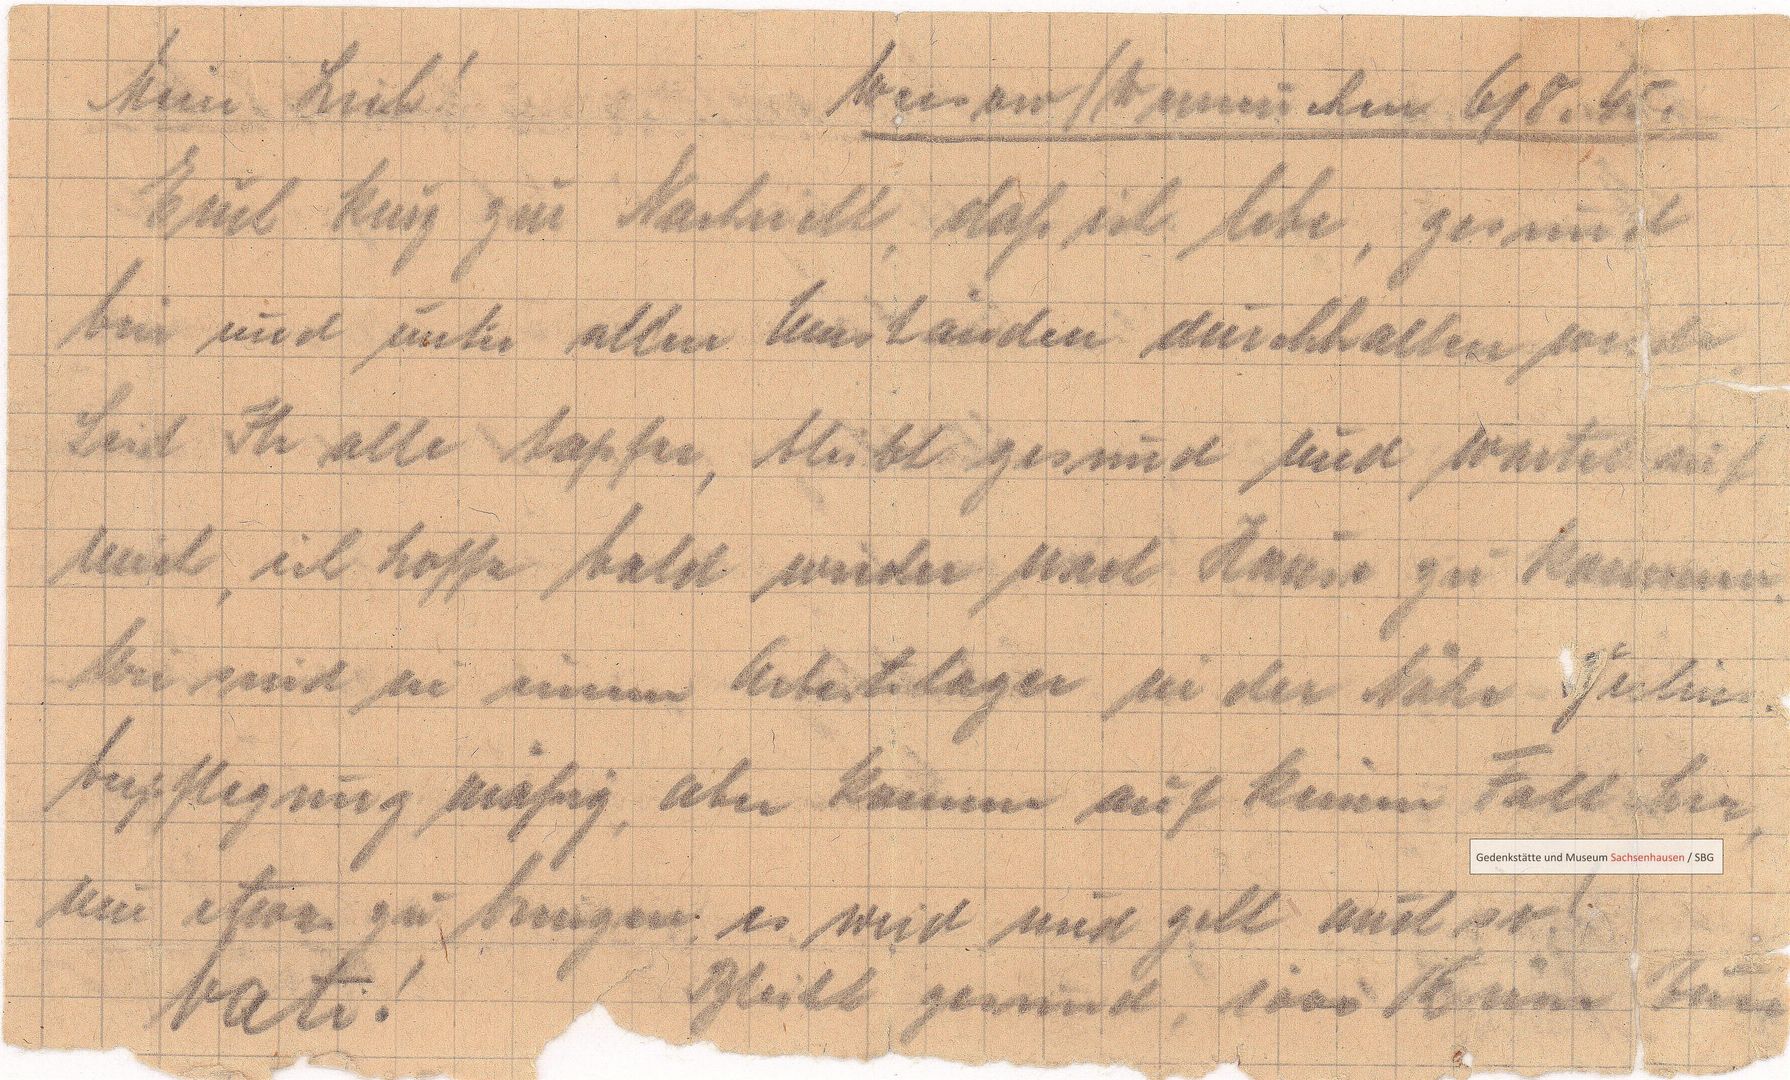 Mein Lieb! Weesow/Werneuchen 6/8. 45.
Euch kurz zur Nachricht, daß ich lebe, gesund
bin und unter allen Umständen durchhalten werde.
Seid Ihr alle tapfer, bleibt gesund und wartet auf
mich, ich hoffe bald wieder nach Hause zu kommen.
Wir sind in einem Arbeitslager in der Nähe Berlins.
Verpflegung mäßig, aber komme auf keinen Fall her,
um etwas zu bringen, es wird und geht auch so!
Vati! Bleibt gesund,
Gedenkstätte und Museum Sachsenhausen / SBG